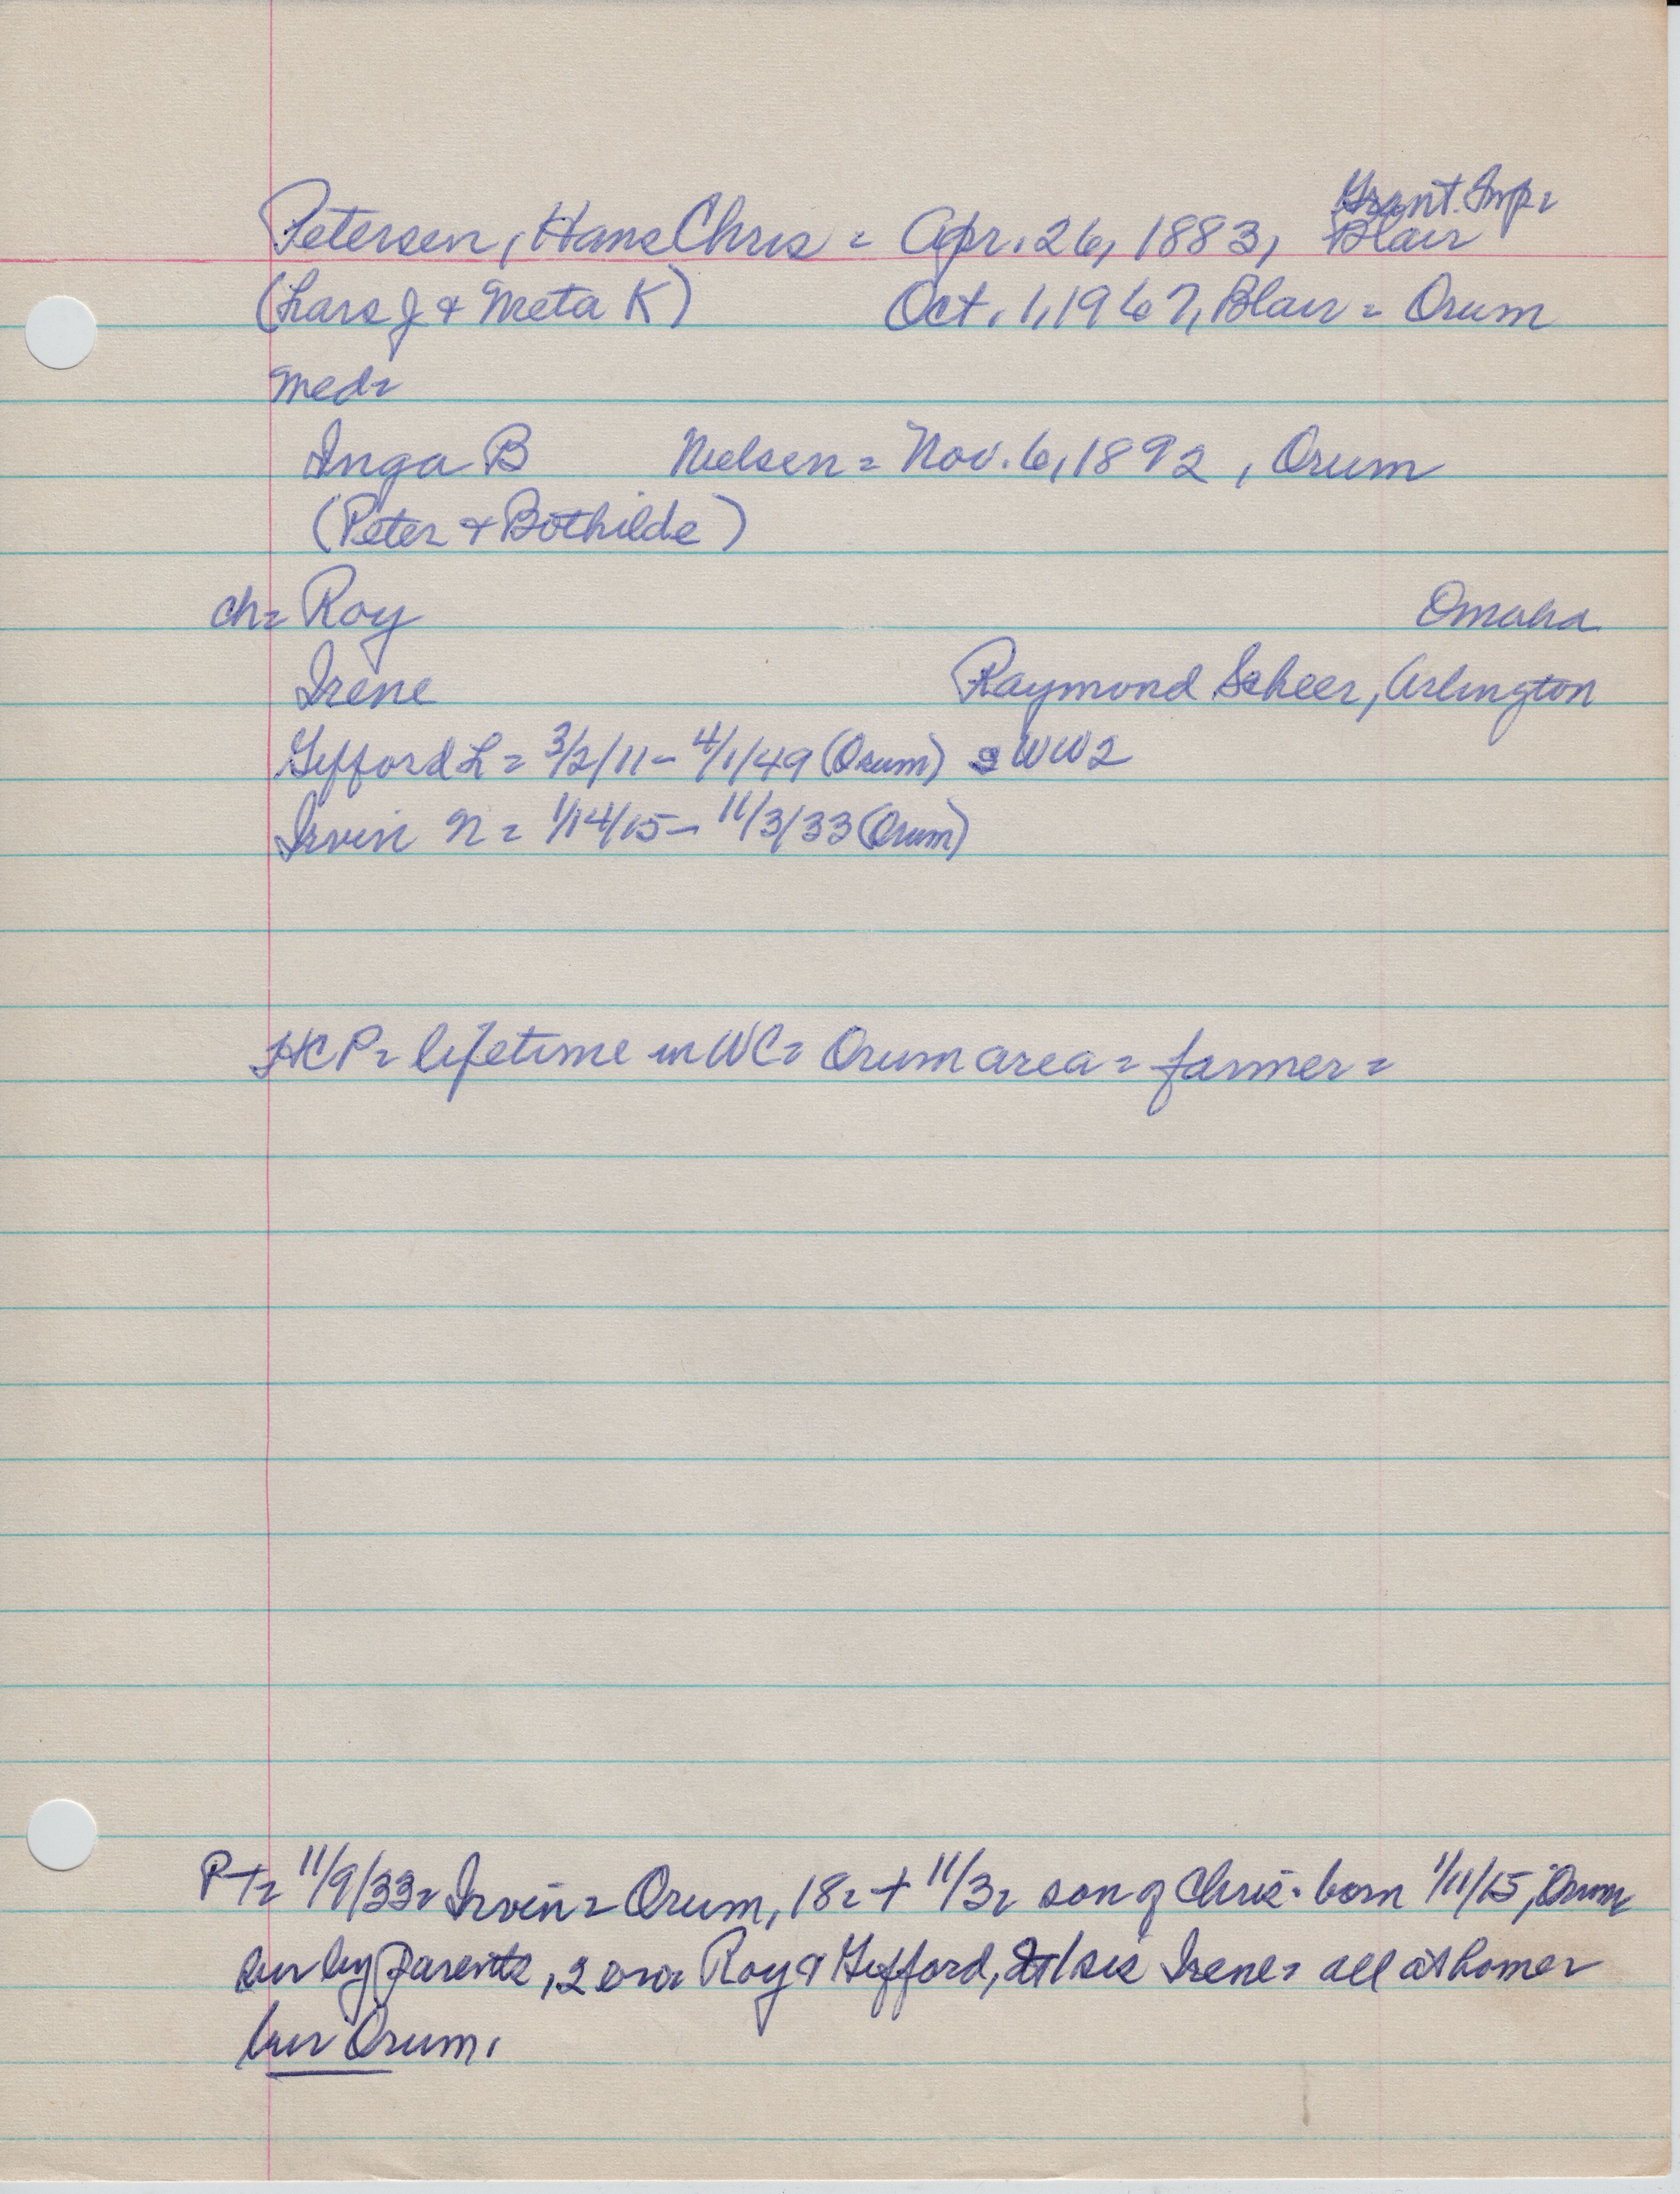 Grant. Twp =
Petersen, Hans Chris = Apr. 26, 1883, Blair
(Lars J & Meta K) Oct. 1, 1967, Blair = Orum
Med =
Inga B Nielsen = Nov. 6, 1892, Orum
(Peter & Bothilde)
ch = Roy Omaha
Irene Raymond Scheer, Arlington
Gifford L = 3/2/11 - 4/1/49 (Orum) = WW2
Irvin N = 1/14/15 - 11/3/33 (Orum)
HCP = lifetime in WC = Orum area = farmer =
PT = 11/9/33 = Irvin = Orum, 18 = + 11/3 = son of Chris = born 1/11/15, Orum
sur by parents, 2 bros Roy & Gifford, 1 sis Irene = all at home =
bur Orum.